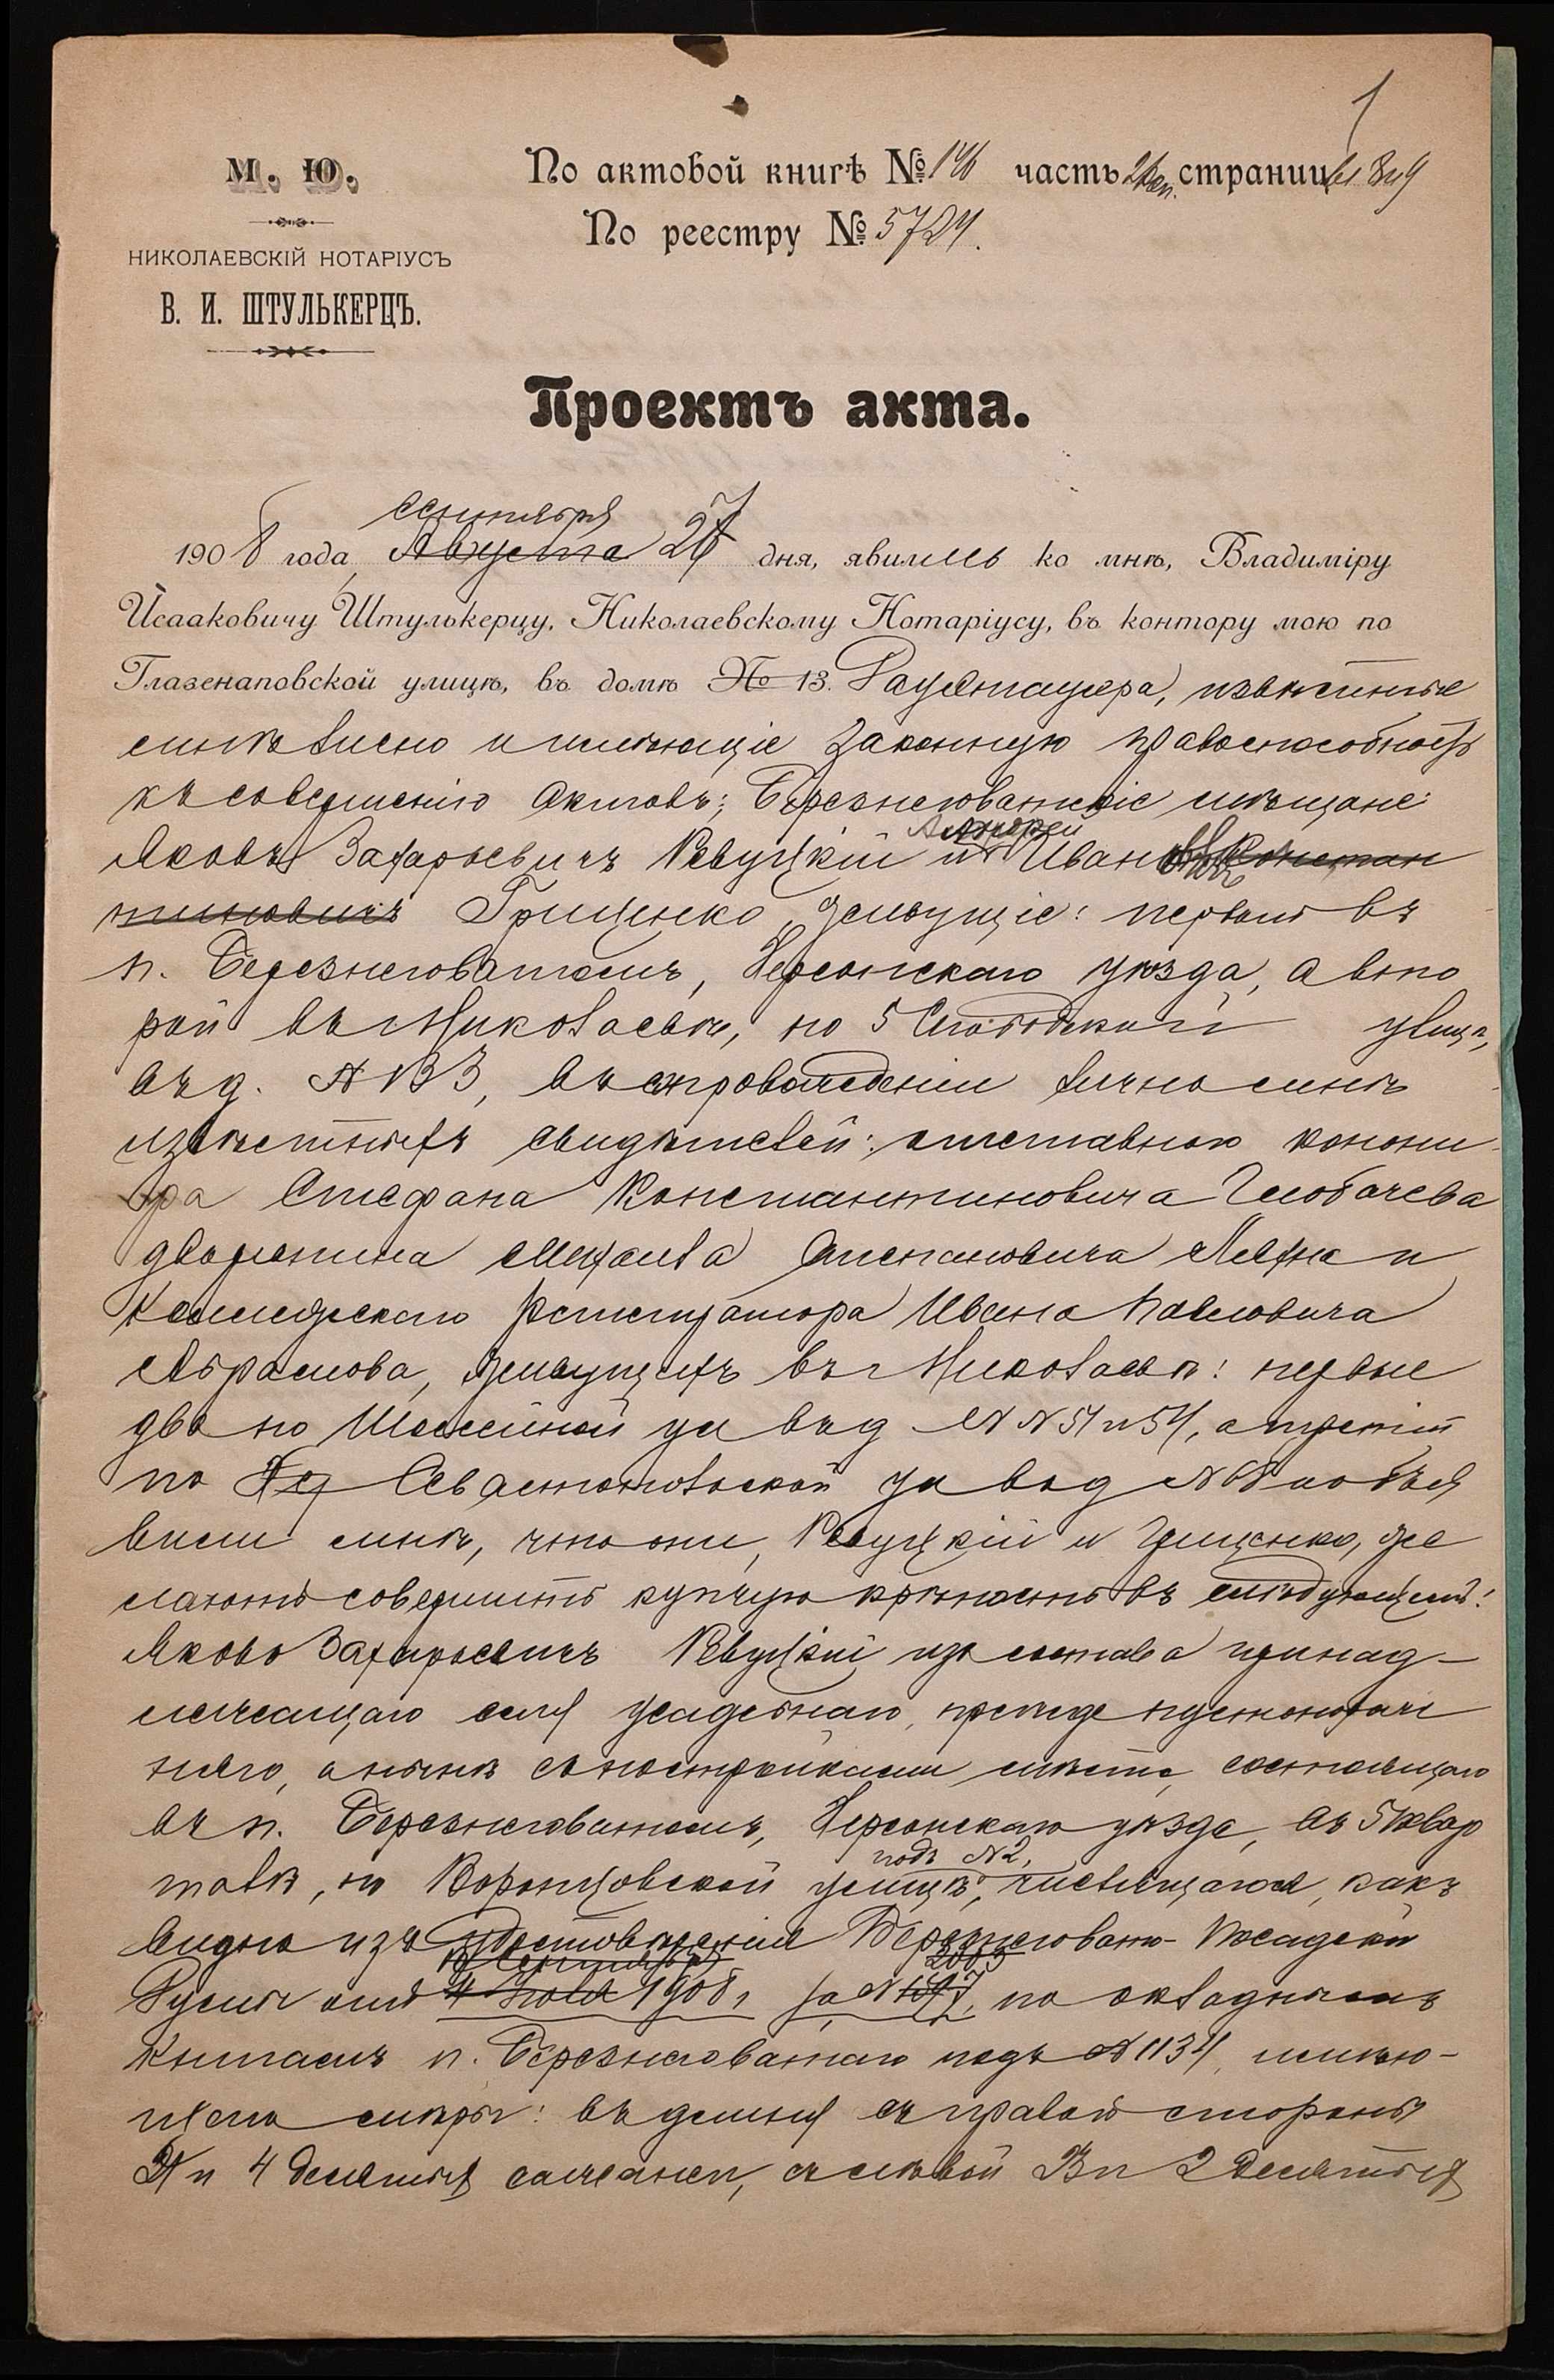 1
М. Ю.
НИКОЛАЕВСКІЙ НОТАРІУСЪ
В. И. ШТУЛЬКЕРЦЪ.
По актовой книгѣ № часть страницы 8 и 9
По реестру № 5724.
Проектъ акта.
Сентября
1908 года, Августа 27 дня, явились ко мнѣ, Владиміру
Исааковичу Штулькерцу, Николаевскому Нотаріусу, въ контору мою по
Глазенаповской улицѣ, въ домѣ № 13. извѣстные
мнѣ лично и имѣющіе законную правоспособность
къ совершенію актовъ: Березнеговатскіе мѣщане:
Андрей
Яковъ Захарьевичъ Ревуцкій и Иванов Констан
тиновичъ Грищенко, живущіе: первый въ
п. Березнеговатомъ, Херсонскаго уѣзда, а вто
рой въ г Николаевѣ, по 5 Слободской улицѣ,
въ д. № 33, въ сопровожденіи лично мнѣ
извѣстныхъ свидѣтелей: отставного канони
ра Стефана Константиновича
дворянина Михаила Степановича и
Коллежскаго Регистратора Ивана Павловича
Абрамова, живущихъ въ г Николаевѣ: первые
два по ул въ д № № 51 и 54, а третій
по Севастопольской ул въ д № объя
вили мнѣ, что они, Ревуцкій и Грищенко, же
лаютъ совершить купчую крѣпость въ слѣдующемъ:
Яковъ Захарьевичъ Ревуцкій изъ состава принад-
лежащаго ему усадебнаго, прежде пустопорож
няго, а нынѣ съ постройками мѣста, состоящаго
въ п. Березнеговатомъ, Херсонскаго уѣзда, въ 5 квар
подъ № 2,
талѣ, по Воронцовской улицѣ, числящагося, какъ
видно изъ удостовѣренія Березнеговато- Посадской
Сентября 2005
Думы отъ 4 Іюля 1908 г за № по окладнымъ
книгамъ п. Березнеговатаго подъ № 1134, имѣю-
щаго мѣры: въ длину съ правой стороны
31 и 4 десятыхъ сажени, съ лѣвой 3 и 2 десятыхъ